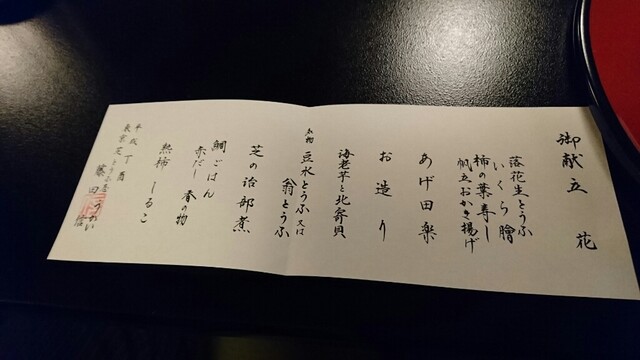 御献立 花
落花生とうふ
いくら膾
柿の葉寿し
帆立おかき揚げ
あげ田楽
お造り
海老芋と北寄貝
名物 豆水とうふ 又は
翁とうふ
芝の治部煮
鯛ごはん
赤だし 香の物
熟柿 しるこ
平成丁酉
東京芝とうふ屋うかい
藤田